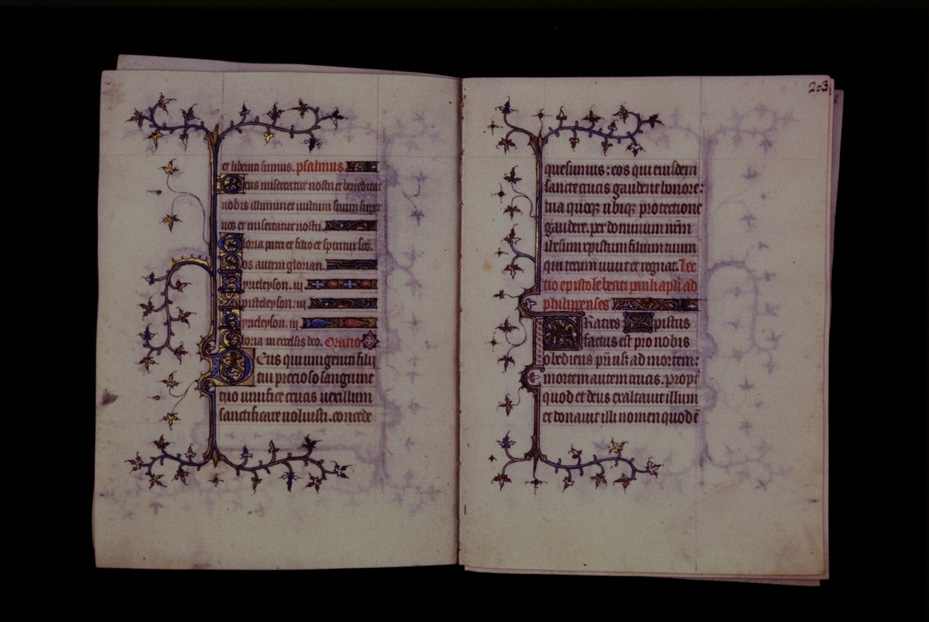 et liberati sumus. psalmus
Deus misereatur nostri et benedicat
nobis illuminet vultum suum super
nos et misereatur nostri.
Gloria patri et filio et spiritui sco.
Nos autem gloriari.
Kyrieleyson. iii
Christeleyson. iii
Kyrieleyson. iii
Gloria in excelsis deo. Oratio
Deus qui unigeniti filij
tui precioso sanguine
uiuifice crucis uexillum
sanctificare uoluisti. concede
203
quesumus: eos qui eiusdem
sancte crucis gaudent honore:
tua quoqz ubiqz protectione
gaudere. per dominum nrm
ihesum xpistum filium tuum
qui tecum uiuit et regnat. Lec
tio epistole beati pauli apli ad
philippenses
Fratres xpistus
factus est pro nobis
obediens usqz ad mortem:
mortem autem crucis. propt
quod et deus exaltauit illum
et donauit illi nomen quod ē